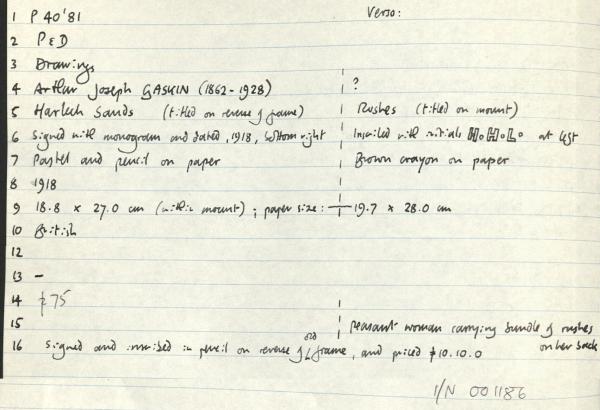 Verso:
1 P 40'81
2 P & D
3 Drawings
4 Arthur Joseph GASKIN (1862-1928) ?
5 Harlech Sands (titled on reverse of frame) Rushes (titled on mount)
6 Signed with monogram and dated, 1918, bottom right Inscribed with initials H.H.L. at left
7 Pastel and pencil on paper Brown crayon on paper
8 1918
9 18.8 x 27.0 cm (within mount) ; paper size: 19.7 x 28.0 cm
10 British
12
13 -
14 £75
15 peasant woman carrying bundle of rushes on her back
16 signed and inscribed in pencil on reverse of old frame, and priced £10.10.0
I/N 001186